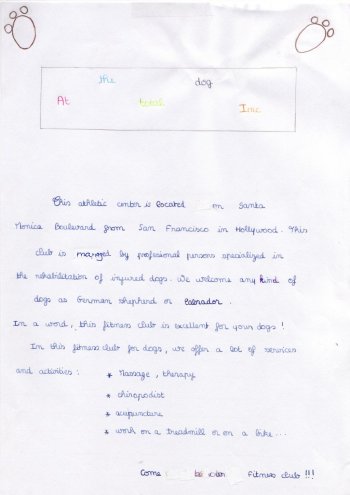 the dog
At total Inc
This athletic center is located on Santa
Monica Boulevard from San Francisco in Hollywood. This
club is managed by profesional persons specialized in
the rehabilitation of injured dogs. We welcome any kind of
dogs as German shepherd or Labrador.
In a word, this fitness club is excellent for your dogs!
In this fitness club for dogs, we offer a lot of services
and activities: * Massage, therapy
* chiropodist
* acupuncture
* work on a treadmill or on a bike...
Come Fitness club!!!